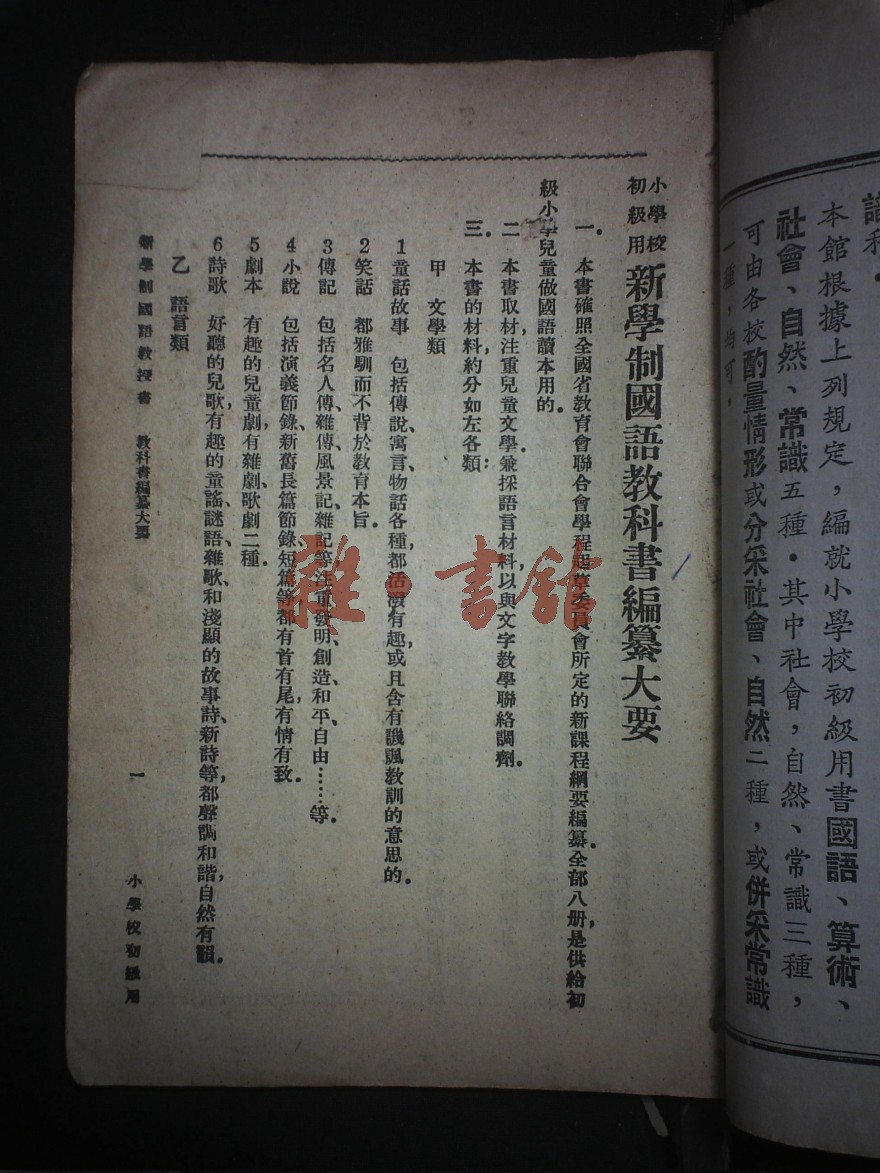 識和．
本館根據上列規定，編就小學校初級用書國語、算術、
社會、自然、常識五種．其中社會，自然、常識三種，
可由各校酌量情形或分采社會、自然二種，或併采常識
一種，均可．
小學校
初級用
新學制國語教科書編纂大要
一．本書確照全國省教育會聯合會學程起草委員會所定的新課程綱要編纂。全部八册，是供給初
級小學兒童做國語讀本用的。
二．本書取材，注重兒童文學，兼採語言材料，以與文字教學聯絡調劑。
三．本書的材料，約分如左各類：
甲 文學類
1 童話故事 包括傳說、寓言、物話各種，都活潑有趣，或且含有譏諷教訓的意思的。
2 笑話 都雅馴而不背於教育本旨。
3 傳記 包括名人傳、雜傳、風景記、雜記等，注重發明、創造、和平、自由……等。
4 小說 包括演義節錄、新舊長篇節錄、短篇等，都有首有尾，有情有致。
5 劇本 有趣的兒童劇，有雜劇、歌劇二種。
6 詩歌 好聽的兒歌，有趣的童謠、謎語、雜歌和淺顯的故事詩、新詩等，都聲調和諧，自然有韻。
乙 語言類
新學制國語教授書 教科書編纂大要
一
小學校初級用
雜·書館